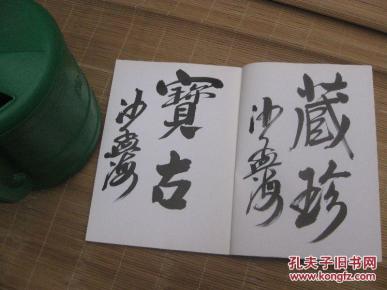 藏珍
沙孟海
寶古
沙孟海
孔夫子旧书网
www.kongfz.com